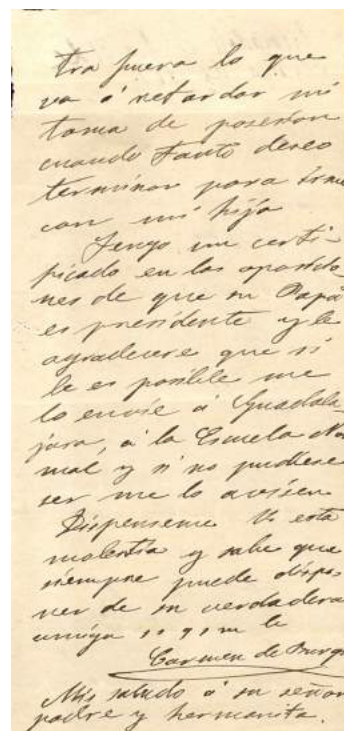 tra fuera lo que
va á retardar mi
toma de posesion
cuando tanto deseo
terminar para irme
con mi hija
Tengo un certi-
ficado en las oposicio-
nes de que su Papá
es presidente y le
agradecere que si
le es posible me
lo envie á Guadala-
jara, á la Escuela Nor
mal y si no pudiese
ser me lo avisen
Dispenseme V. esta
molestia y sabe que
siempre puede dispo-
ner de su verdadera
amiga
Carmen de Burgo
Mis saludo á su señor
padre y hermanita.